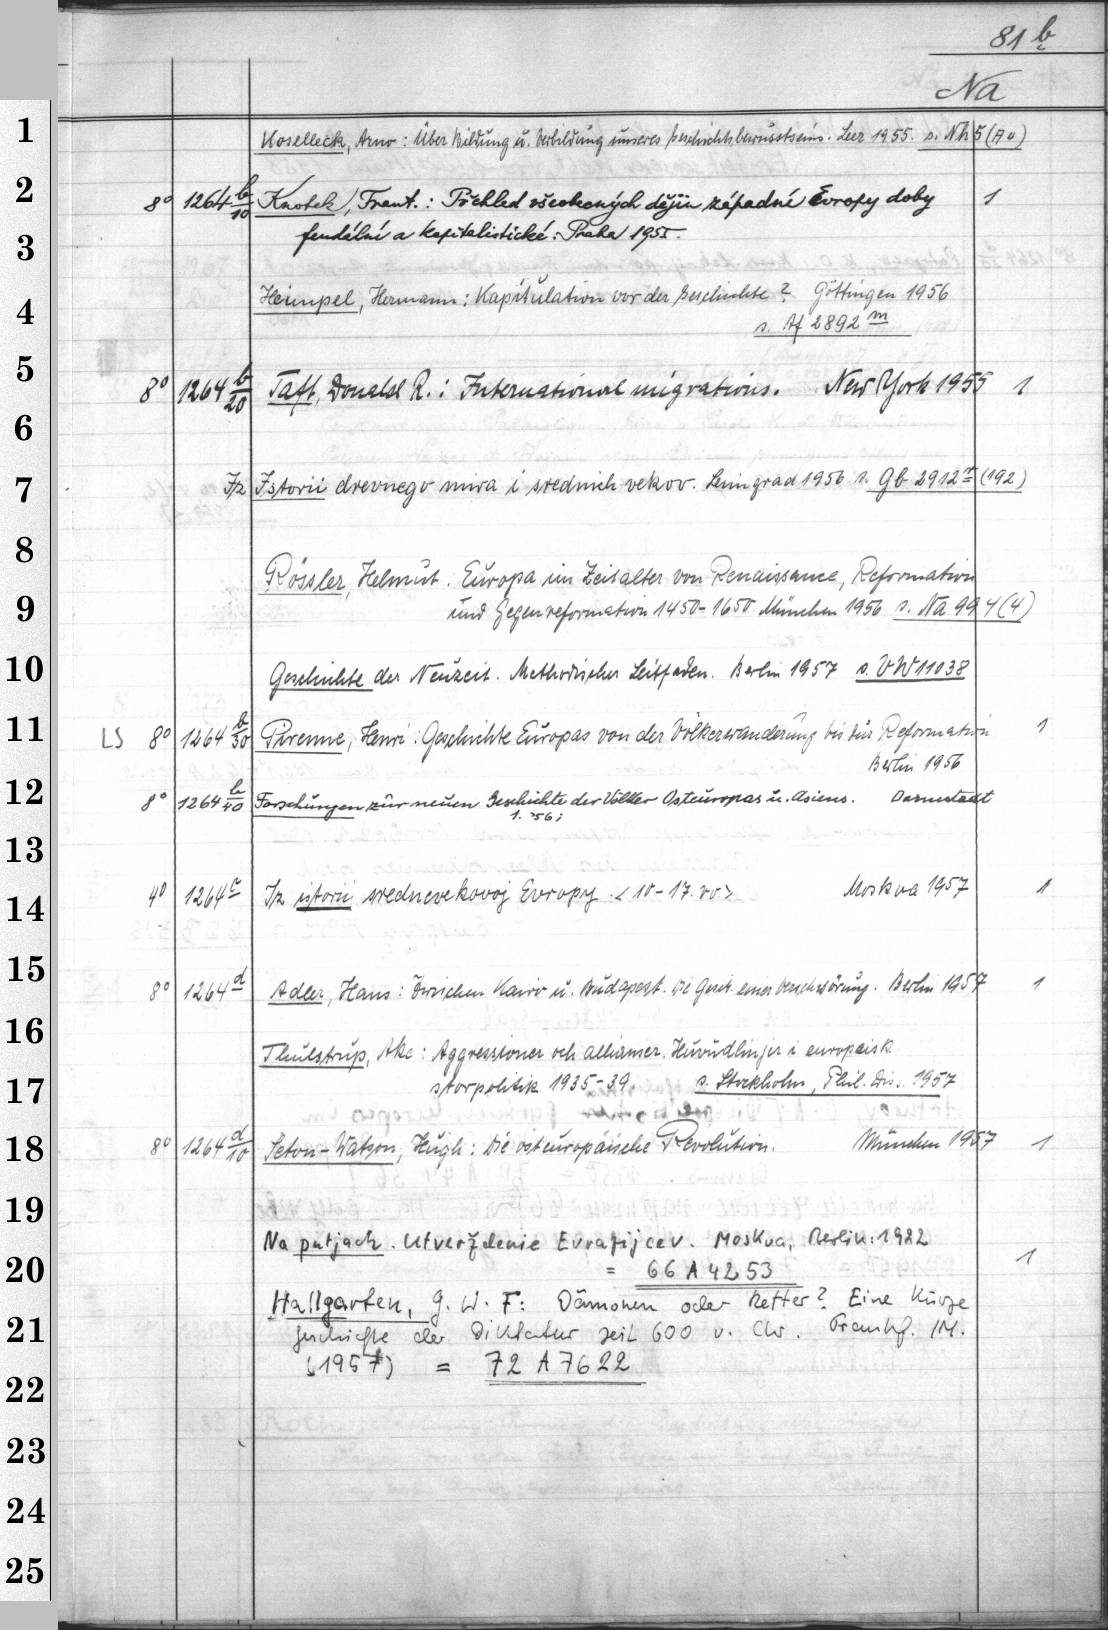 81 b
Na
1
Koselleck, Arno: Über Bildung u. Verbildung unseres Geschichtsbewusstseins. Leer 1955. s. Nh 5 (A4)
2
8° 1264 b/10 Knotek, Frant.: Přehled všeobecných dějin západní Evropy doby 1
3
feudální a kapitalistické. Praha 1955.
Heimpel, Hermann: Kapitulation vor der Geschichte? Göttingen 1956
4
s. Af 2892 m
5
8° 1264 b/20 Taft, Donald R.: International migrations. New York 1955 1
6
7
Iz Istorii drevnego mira i srednich vekov. Leningrad 1956 s. Gb 2912 n (192)
8
Rössler, Helmut: Europa im Zeitalter von Renaissance, Reformation
9
und Gegenreformation 1450-1650 München 1956 s. Na 994 (4)
10
Geschichte der Neuzeit. Methodischer Leitfaden. Berlin 1957 s. VW 11038
11
LS 8° 1264 b/30 Pirenne, Henri: Geschichte Europas von der Völkerwanderung bis zur Reformation 1
Berlin 1956
12
8° 1264 b/40 Forschungen zur neuen Geschichte der Völker Osteuropas u. Asiens. Darmstadt
1. '56;
13
14
4° 1264 c Iz istorii srednevekovoj Evropy. <10-17. vv.> Moskva 1957 1
15
8° 1264 d Adler, Hans: Zwischen Kairo u. Budapest. Die Gesch. einer Verschwörung. Berlin 1957 1
16
Thulstrup, Åke: Aggressioner och allianser. Huvudlinjer i europeisk
17
storpolitik 1935-39. s. Stockholm, Phil. Diss. 1957
18
8° 1264 d/10 Seton-Watson, Hugh: Die osteuropäische Revolution. München 1957 1
19
Na putjach. Utverždenie Evrazijcev. Moskva, Berlin: 1922
20
= 66 A 4253 1
Hallgarten, G. W. F: Dämonen oder Retter? Eine kurze
21
Geschichte der Diktatur seit 600 v. Chr. Frankf. /M.
(1957) = 72 A 7622
22
23
24
25